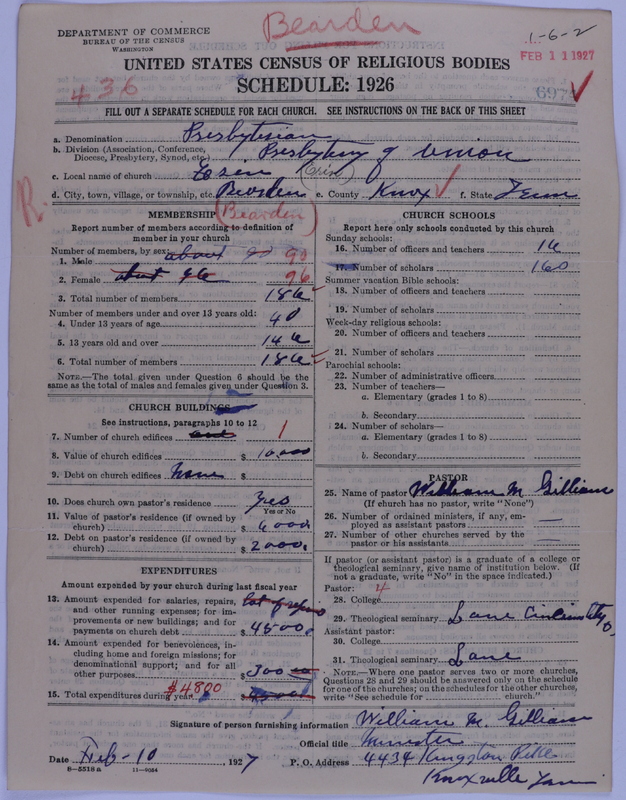 Bearden
DEPARTMENT OF COMMERCE
BUREAU OF THE CENSUS
WASHINGTON
1-6-2
FEB 11 1927
UNITED STATES CENSUS OF RELIGIOUS BODIES
SCHEDULE: 1926
436
697
FILL OUT A SEPARATE SCHEDULE FOR EACH CHURCH. SEE INSTRUCTIONS ON THE BACK OF THIS SHEET
a. Denomination Presbyterian
b. Division (Association, Conference, Diocese, Presbytery, Synod, etc.) Presbytery of Union
c. Local name of church
d. City, town, village, or township, etc. Bearden e. County Knox f. State Tenn
R.
(Bearden)
MEMBERSHIP
Report number of members according to definition of
member in your church
Number of members, by sex:
1. Male about 90 90
2. Female about 96 96
3. Total number of members 186
Number of members under and over 13 years old:
4. Under 13 years of age 40
5. 13 years old and over 146
6. Total number of members 186
NOTE.—The total given under Question 6 should be the
same as the total of males and females given under Question 3.
CHURCH BUILDINGS
See instructions, paragraphs 10 to 12
7. Number of church edifices 1
8. Value of church edifices $ 10,000
9. Debt on church edifices None $
10. Does church own pastor's residence Yes
Yes or No
11. Value of pastor's residence (if owned by
church) $ 6000
12. Debt on pastor's residence (if owned by
church) $ 2000
EXPENDITURES
Amount expended by your church during last fiscal year
13. Amount expended for salaries, repairs,
and other running expenses; for im-
provements or new buildings; and for
payments on church debt $ 4500
14. Amount expended for benevolences, in-
cluding home and foreign missions; for
denominational support; and for all
other purposes $ 300 00
15. Total expenditures during year $4800 $
CHURCH SCHOOLS
Report here only schools conducted by this church
Sunday schools:
16. Number of officers and teachers 16
17. Number of scholars 160
Summer vacation Bible schools:
18. Number of officers and teachers
19. Number of scholars
Week-day religious schools:
20. Number of officers and teachers
21. Number of scholars
Parochial schools:
22. Number of administrative officers
23. Number of teachers—
a. Elementary (grades 1 to 8)
b. Secondary
24. Number of scholars—
a. Elementary (grades 1 to 8)
b. Secondary
PASTOR
25. Name of pastor William M. Gilliam
(If church has no pastor, write "None")
26. Number of ordained ministers, if any, em-
ployed as assistant pastors —
27. Number of other churches served by the
pastor or his assistants —
If pastor (or assistant pastor) is a graduate of a college or
theological seminary, give name of institution below. (If
not a graduate, write "No" in the space indicated.)
Pastor:
28. College
29. Theological seminary Lane
Assistant pastor:
30. College
31. Theological seminary Lane
NOTE.—Where one pastor serves two or more churches,
Questions 28 and 29 should be answered only on the schedule
for one of the churches; on the schedules for the other churches,
write "See schedule for church."
Signature of person furnishing information William M. Gilliam
Official title Minister
Date Feb-10 1927 P. O. Address 4434 Kingston Pike
Knoxville Tenn
8—5518 a 11—9084